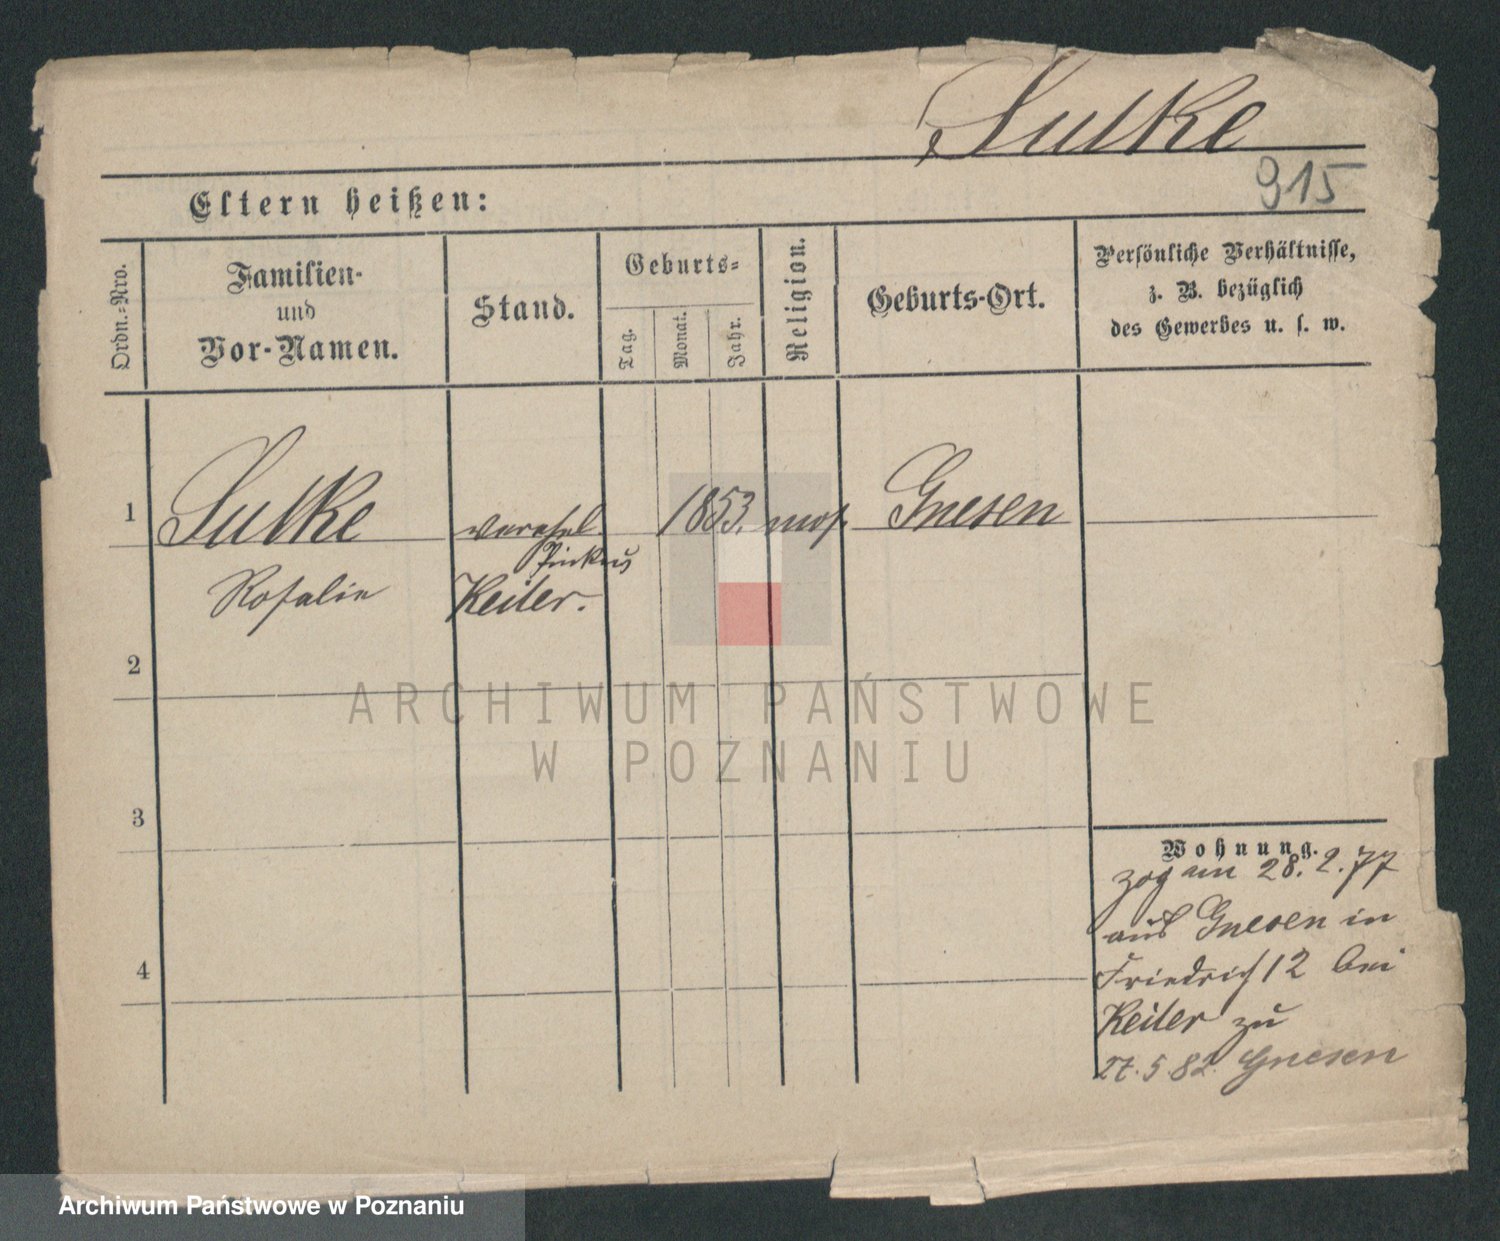 Sulke
915
Eltern heißen:
Ordn.-Nro.
Familien-
und
Vor-Namen.
Stand.
Geburts-
Tag.
Monat.
Jahr.
Religion.
Geburts-Ort.
Persönliche Verhältnisse,
z. B. bezüglich
des Gewerbes u. s. w.
1
Sulke
verehel.
1853.
mos.
Gnesen
Pinkus
Rosalie
Keiler.
2
3
4
Wohnung.
zog am 28.2.77
aus Gnesen in
Friedrich 12 bei
Keiler zu
27.5.82 Gnesen
ARCHIWUM PAŃSTWOWE
W POZNANIU
Archiwum Państwowe w Poznaniu